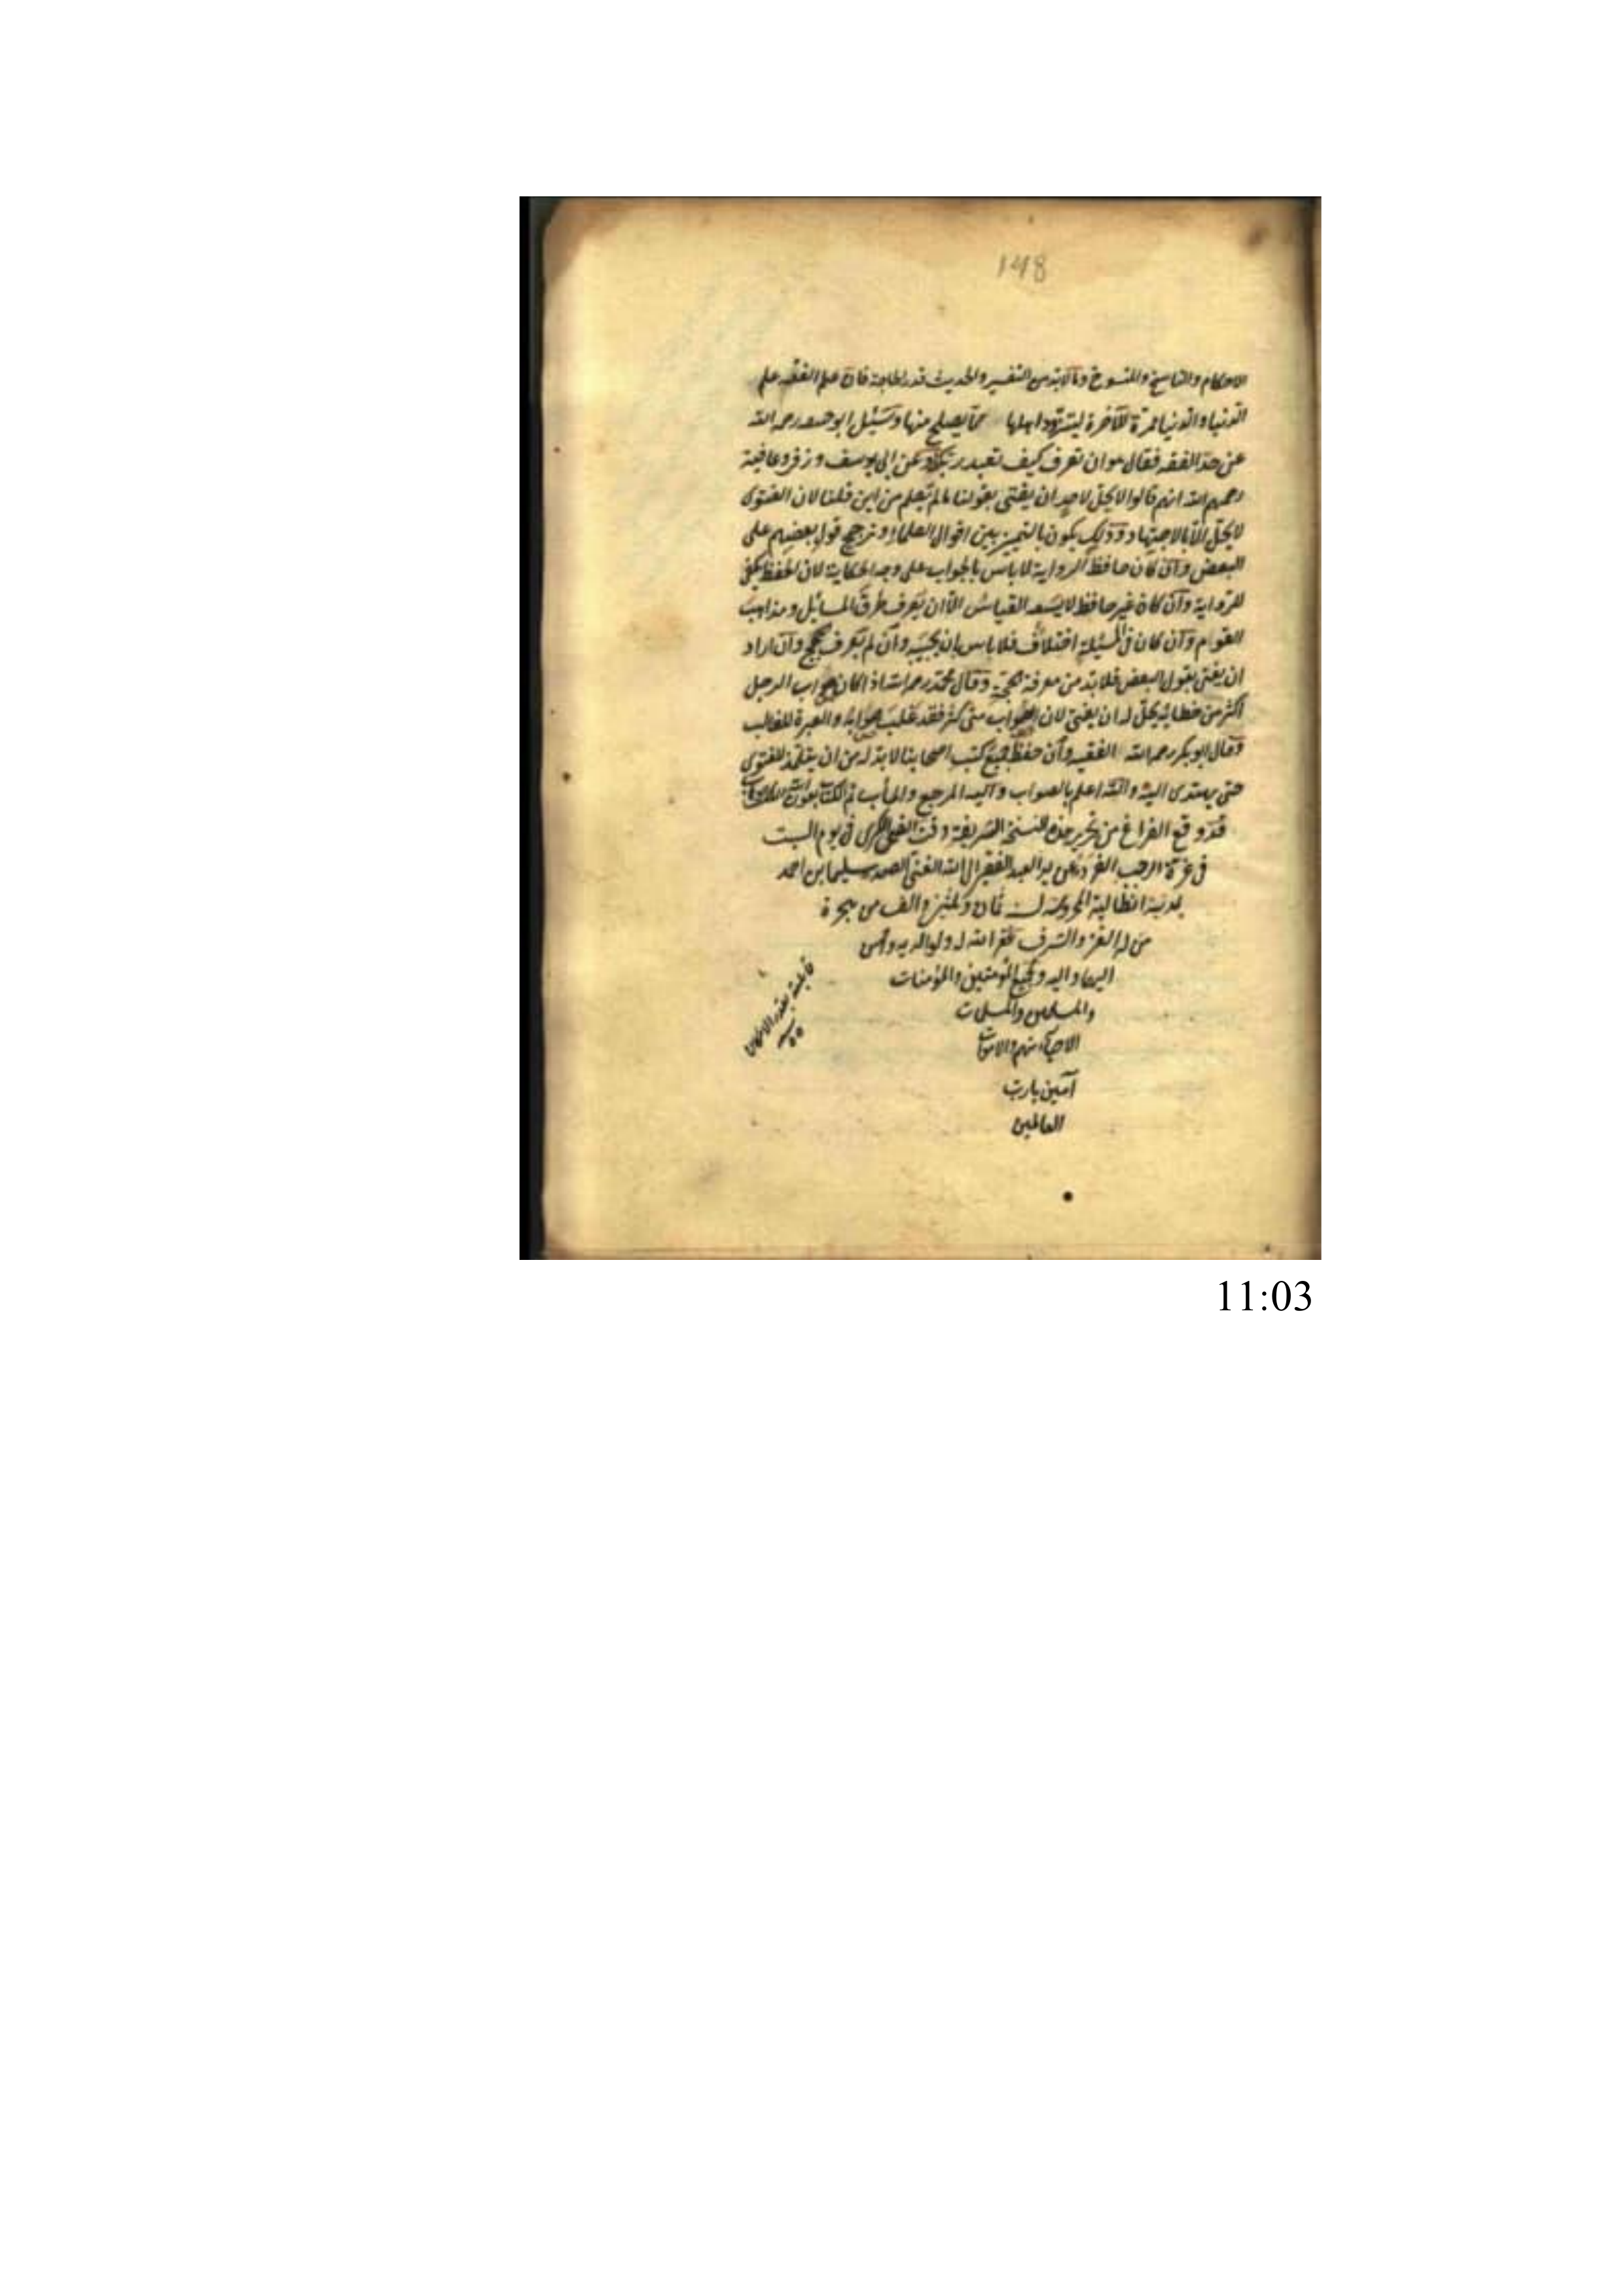 148
الاحكام والناسخ والمنسوخ وما لابد من التفسير والحديث قدر الحاجة فان علم الفقه علم
الدنيا والدنيا ممرة للآخرة ليتزود اهلها مما يصلح منها وسئل ابو حفص رحمه الله
عن حد الفقه فقال هو ان تعرف كيف تعبد ربك وعن ابى يوسف وزفر وعافية
رحمهم الله انهم قالوا لا يحل لاحد ان يفتى بقولنا ما لم يعلم من اين قلنا لان الفتوى
لا يحل الا بالاجتهاد وذلك يكون بالتميز بين اقوال العلماء وترجح قول بعضهم على
البعض وان كان حافظ الرواية لا باس بالجواب على وجه الحكاية لان الحفظ يكفى
للرواية وان كان غير حافظ لا يسعه القياس الا ان يعرف طرق المسائل ومذاهب
القوم وان كان فى المسئلة اختلاف فلا باس بان يجيب وان لم يعرف حجج وان اراد
ان يفتى بقول البعض فلا بد من معرفة حجته وقال محمد رحمه الله اذا كان صواب الرجل
اكثر من خطائه يحل له ان يفتى لان الصواب متى كثر فقد غلب صوابه والعبرة للغالب
وقال ابو بكر رحمه الله الفقيه وان حفظ جميع كتب اصحابنا لا بد له من ان يتلمذ للفتوى
حتى يهتدى اليه والله اعلم بالصواب واليه المرجع والمأب تم الكتاب بعون الله الملك الوهاب
قد وقع الفراغ من تحرير هذه النسخة الشريفة وقت الضحى الكبرى فى يوم السبت
فى غرة الرجب الفرد على يد العبد الفقير الى الله الغنى الصمد سليمان بن احمد
بمدينة انطالية المحروسة سنه ثمان وثلثين والف من هجرة
من له العز والشرف غفر الله له ولوالديه واحسن
اليهما واليه ولجميع المؤمنين والمؤمنات
والمسلمين والمسلمات
الاحياء منهم والاموات
آمين يا رب
العالمين
قابلته بقدر الامكان
11:03